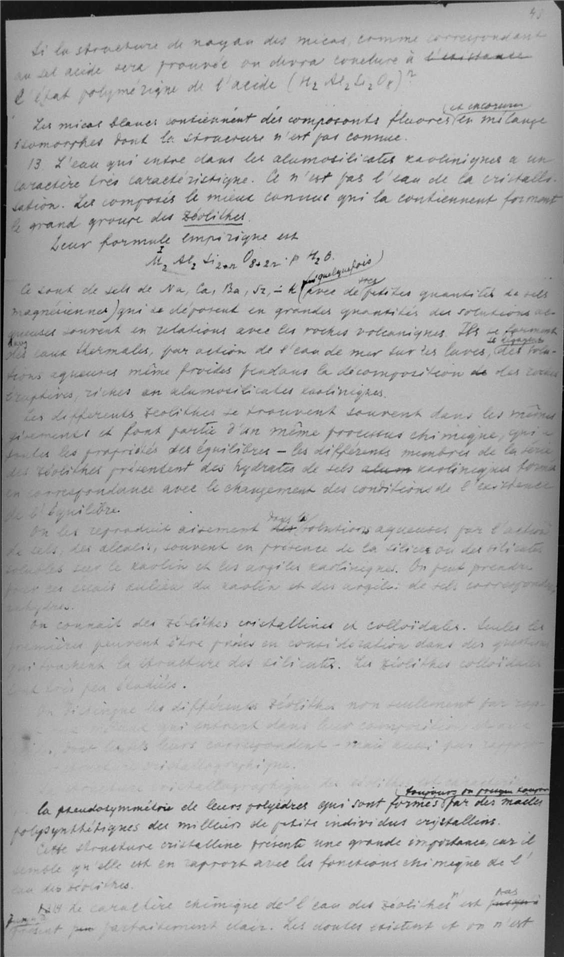 Si la structure de noyau des micas, comme correspondant
au sel acide sera prouvée on devra conclure à l'existence
l'état polymérique de l'acide (H2 Al2 Si2 O8)?
Les micas blancs contiennent des composants fluorés (et encore) en mélange
isomorphes dont la structure n'est pas connue.
13 L'eau qui entre dans les alumosilicates kaoliniques a un
caractère très caractéristique. Ce n'est pas l'eau de la cristalli-
sation. Les composés le mieux connus qui la contiennent forment
le grand groupe des zéolithes.
Leur formule empirique est
M2 Al2 Si2+n O8+2n . p H2O.
Ce sont de sels de Na, Ca, Ba, Sr, K (quelquefois avec de petites quantités de sels
magnésiennes) qui se déposent en grandes quantités des solutions aq-
ueuses souvent en relations avec les roches volcaniques. Ils se forment
des eaux thermales, par action de l'eau de mer sur les laves, des solu-
tions aqueuses même froides pendant la décomposition des roches
éruptives, riches en alumosilicates kaoliniques.
Les différents zéolithes se trouvent souvent dans les mêmes
gisements et font partie d'un même processus chimique, qui a
toutes les propriétés des équilibres – les différents membres de la série
des zéolithes présentent des hydrates de sels kaoliniques formés
en correspondance avec le changement des conditions de l'existence
de l'équilibre.
On les reproduit aisement dans les solutions aqueuses par l'action
de sels, des alcalis, souvent en présence de la silice ou des silicates
solubles sur le kaolin et les argiles kaoliniques. On peut prendre
pour ces essais au lieu du kaolin et des argiles de sels correspondants
On connaît des zéolithes cristallines et colloïdales. Seules les
premières peuvent être prises en considération dans des questions
qui touchent la structure des silicates. Les zéolithes colloïdales
sont très peu étudiées.
On distingue les différents zéolithes non seulement par rap-
qui entrent dans leur composition
leurs correspondent – mais aussi par rapport
cristallographique.
La structure cristallographique des zéolithes est caractérisée
la pseudosymmétrie de leurs polyèdres qui sont (toujours ou presque toujours) formés par des macles
polysynthétiques des milliers de petits individus cristallins.
Cette structure cristalline présente une grande importance, car il
semble qu'elle est en rapport avec les fonctions chimiques de l'
eau des zéolithes.
Le caractère chimique de "l'eau des zéolithes" est pas
parfaitement clair. Les doutes existent et on n'est